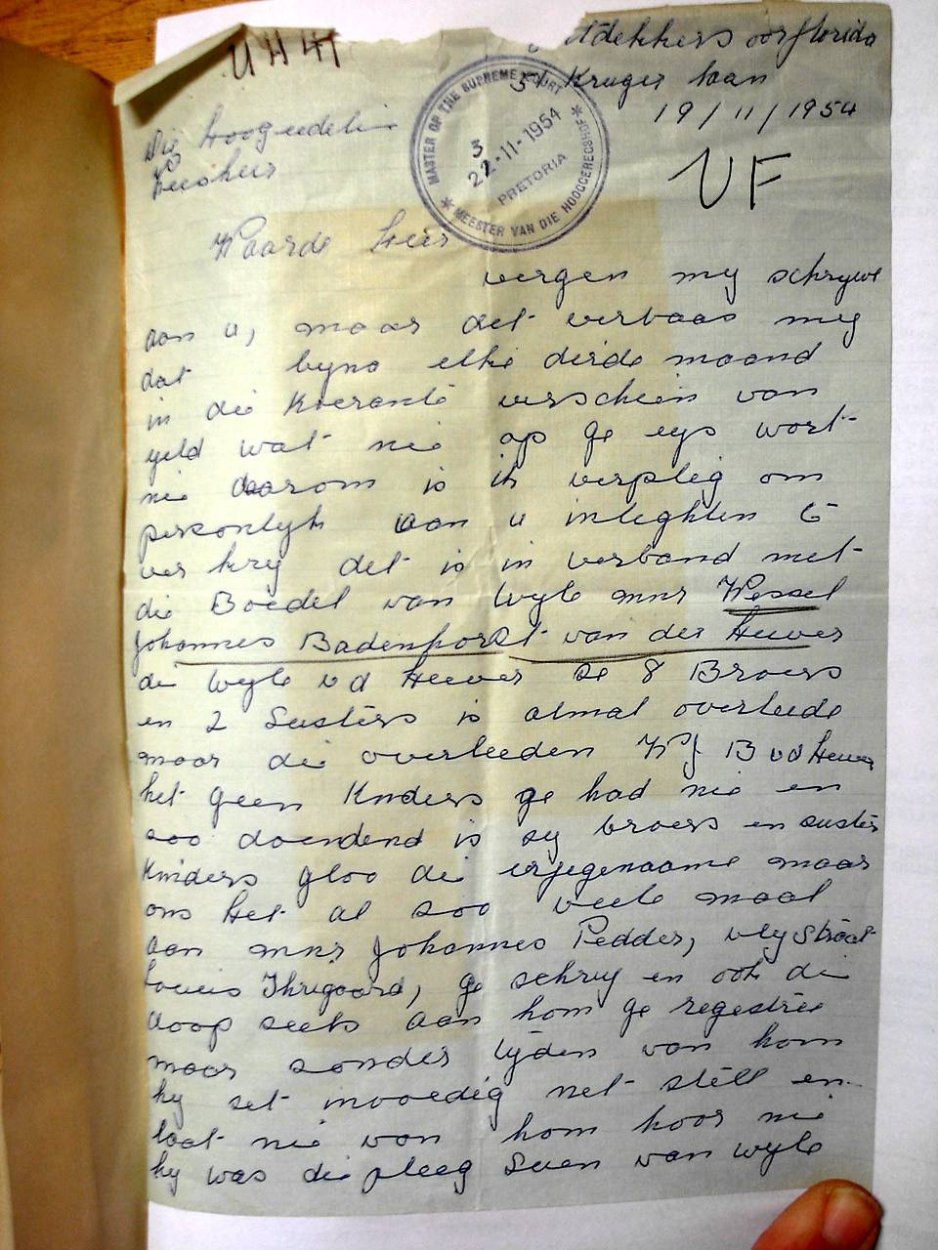 oorflorida
51 Kruger laan
19/11/1954
MASTER OF THE SUPREME COURT
22-11-1954
PRETORIA
MEESTER VAN DIE HOOGGEREGSHOF
VF
Die
Waarde heer
vergen my schrywe
aan u, maar det verbaas my
dat byna elke derde maand
in die koerante verschein van
geld wat nie op ge eys wort
nie daarom is ik verpleg om
persoonlyk aan u inleghten te
ver kry det is in verband met
die Boedel van Wyle mnr Wessel
Johannes Badenhorst van der Heever
die wyle v d Heever se 8 Broers
en 2 Susters is almal overleede
maar die overleeden W J B v d Heever
het geen Kinders ge had nie en
soo doendend is sy broers en susters
Kinders gloo die erfgenaame maar
ons het al soo veele maal
aan mnr Johannes Pedder, vly Straat
Louis Thregaard, ge schryf en ook die
doop seels aan hom ge regestree
maar sonder tyden van hom
hy set moedig net stell en
laat nie van hom hoor nie
hy was die pleeg Seen van wyle